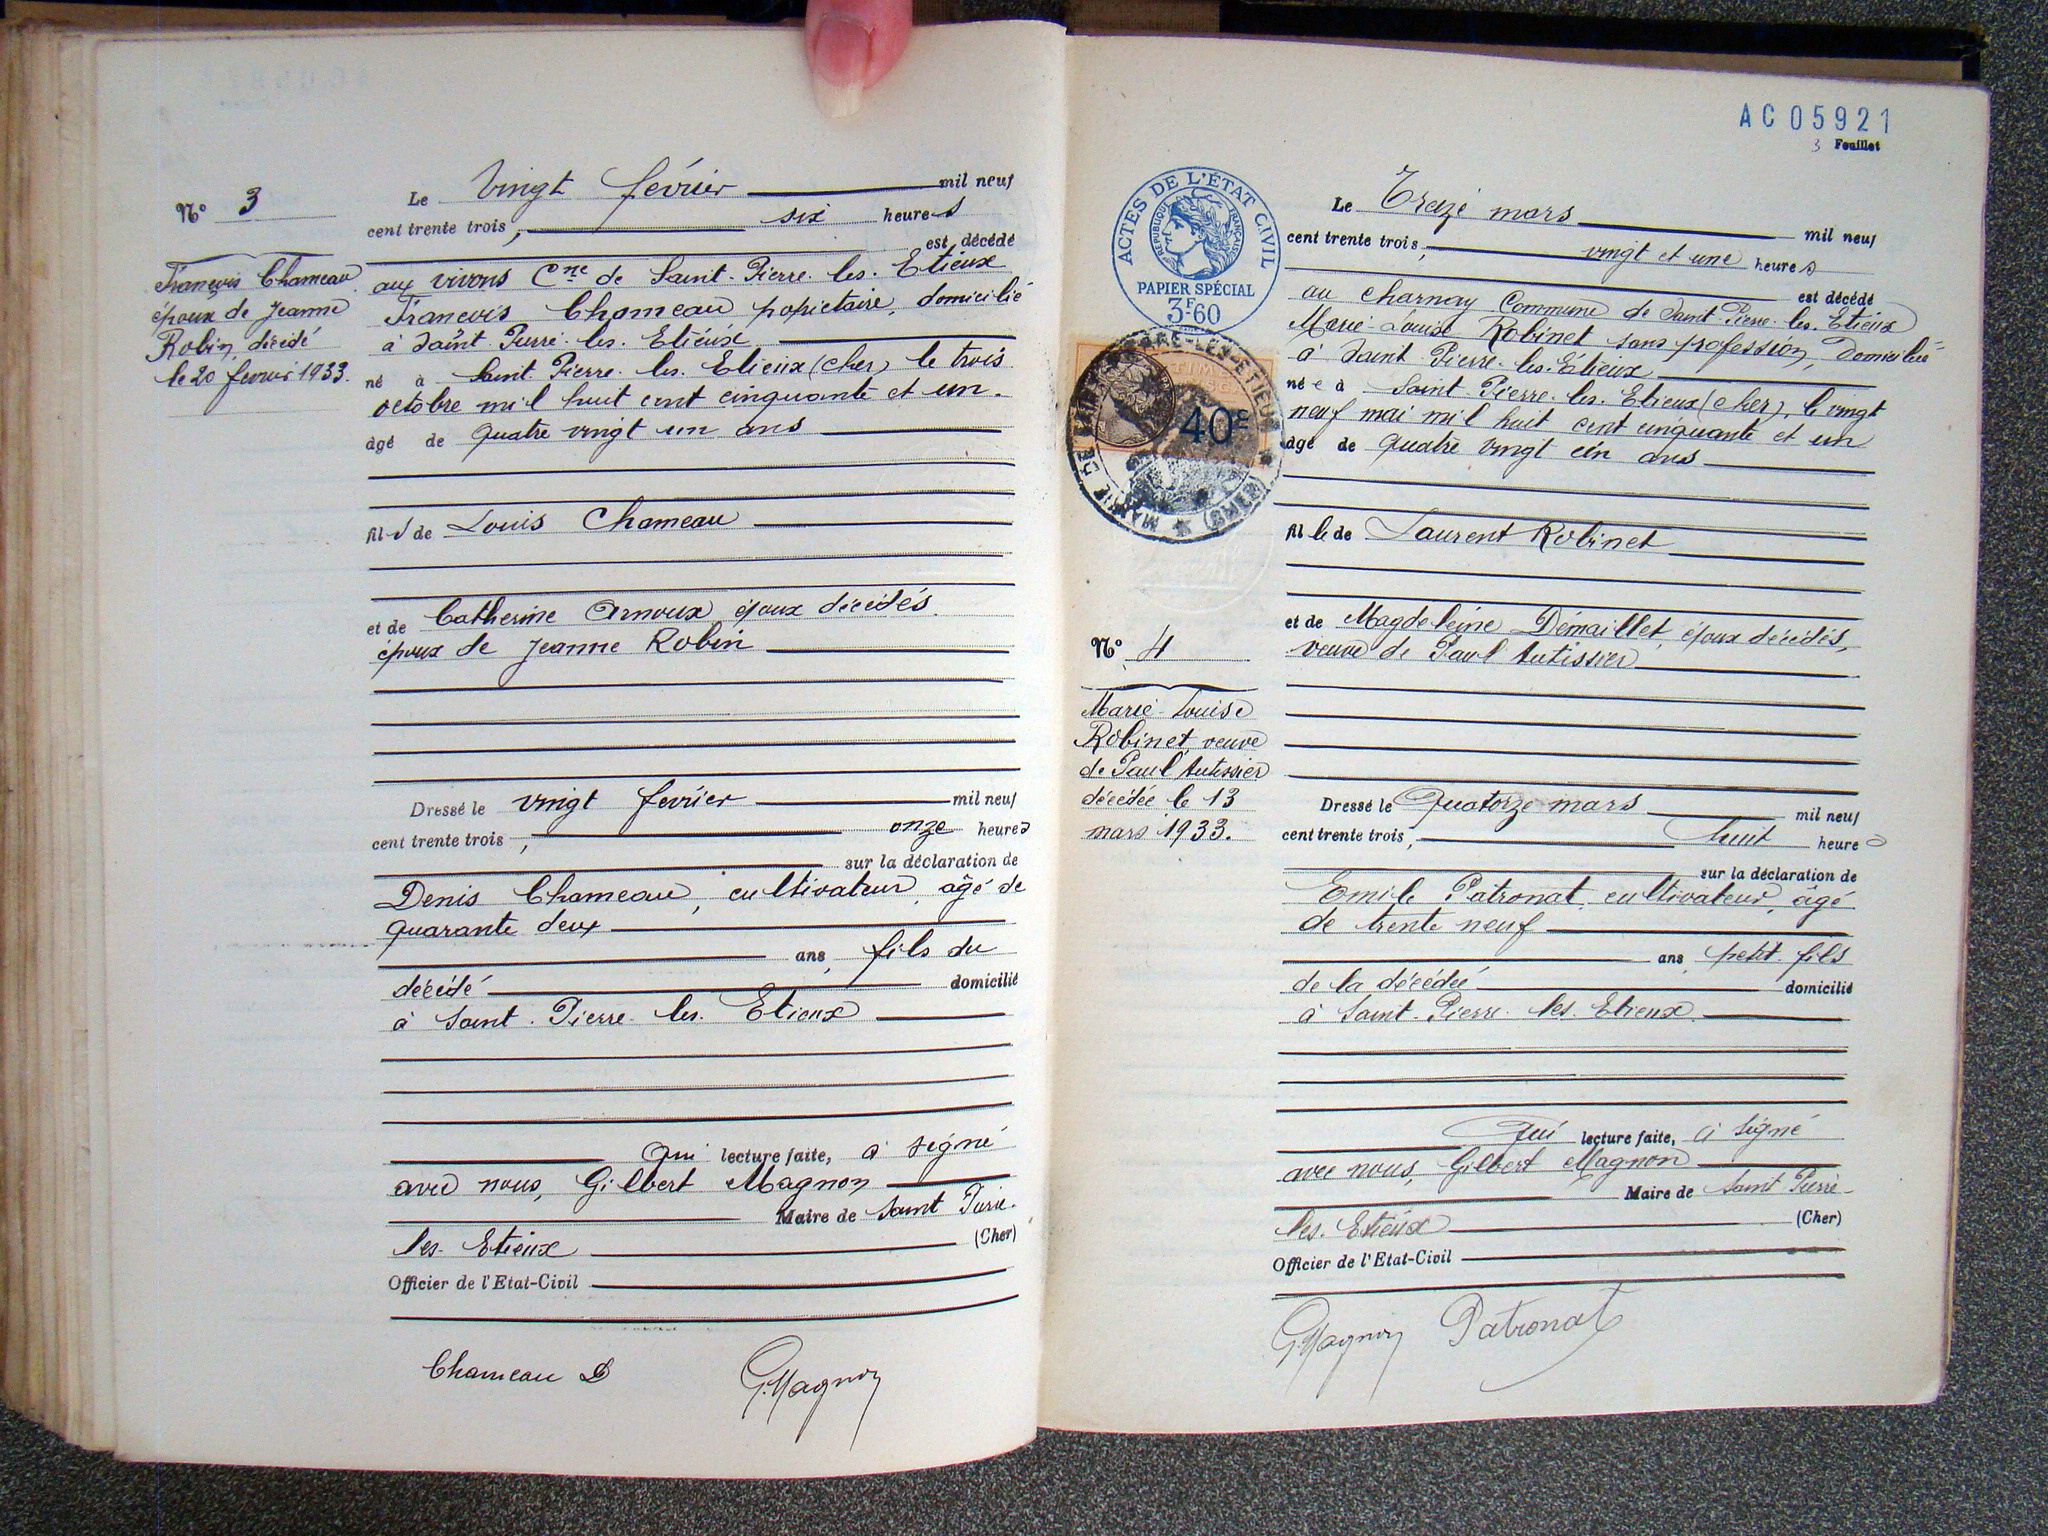 N° 3
François Chameau
époux de Jeanne
Robin, décédé
le 20 fevrier 1933.
Le vingt fevrier mil neuf
cent trente trois, six heures
est décédé
aux vivons Cne de Saint-Pierre-les-Etieux
François Chameau popriétaire, domicilié
à Saint-Pierre-les-Etieux
né à Saint-Pierre-les-Etieux (cher) le trois
octobre mil huit cent cinquante et un.
âgé de quatre vingt un ans
fils de Louis Chameau
et de Catherine Arnoux, époux décédés
époux de Jeanne Robin
Dressé le vingt fevrier mil neuf
cent trente trois, onze heures
sur la déclaration de
Denis Chameau, cultivateur, âgé de
quarante deux
ans, fils du
décédé domicilié
à Saint-Pierre-les-Etieux
Qui lecture faite, a signé
avec nous, Gilbert Magnon
Maire de Saint Pierre-
les-Etieux (Cher)
Officier de l'Etat-Civil
Chameau D G. Magnon
AC05921
3 Feuillet
ACTES DE L'ÉTAT CIVIL
RÉPUBLIQUE FRANÇAISE
PAPIER SPÉCIAL
3F60
40c
N° 4
Marie-Louise
Robinet, veuve
de Paul Autissier
décédée le 13
mars 1933.
Le Treize mars mil neuf
cent trente trois, vingt et une heures
est décédé
au charnay Commune de Saint-Pierre-les-Etieux
Marie-Louise Robinet sans profession, domiciliée
à Saint-Pierre-les-Etieux
née à Saint-Pierre-les-Etieux (cher), le vingt
neuf mai mil huit cent cinquante et un
âgé de quatre vingt un ans
fille de Laurent Robinet
et de Magdeleine Démaillet, époux décédés,
veuve de Paul Autissier
Dressé le Quatorze mars mil neuf
cent trente trois, huit heures
sur la déclaration de
Emile Patronat, cultivateur, âgé
de trente neuf
ans, petit-fils
de la décédée domicilié
à Saint-Pierre-les-Etieux
Qui lecture faite, a signé
avec nous, Gilbert Magnon
Maire de Saint Pierre-
les-Etieux (Cher)
Officier de l'Etat-Civil
G. Magnon Patronat